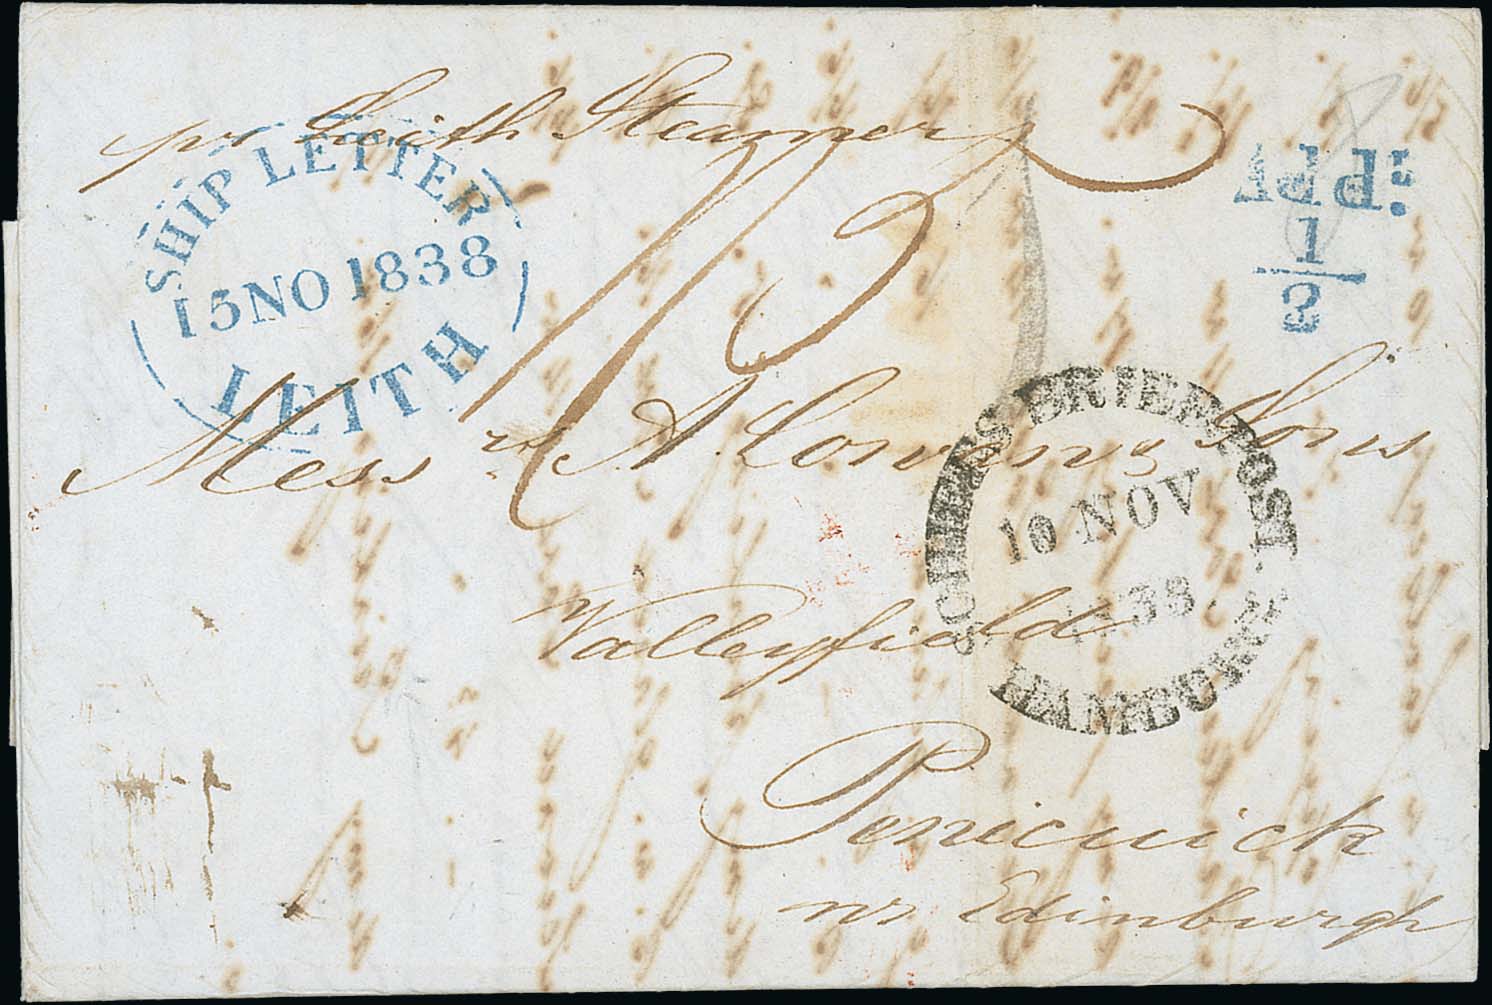 pr Leith Steamer
SHIP LETTER
15 NO 1838
LEITH
Add:
1
2
Messrs A. Cowan & Sons
SCHIFFS BRIEF POST.
10 NOV
1838.
HAMBURG.
Valleyfield
Penicuick
nr Edinburgh